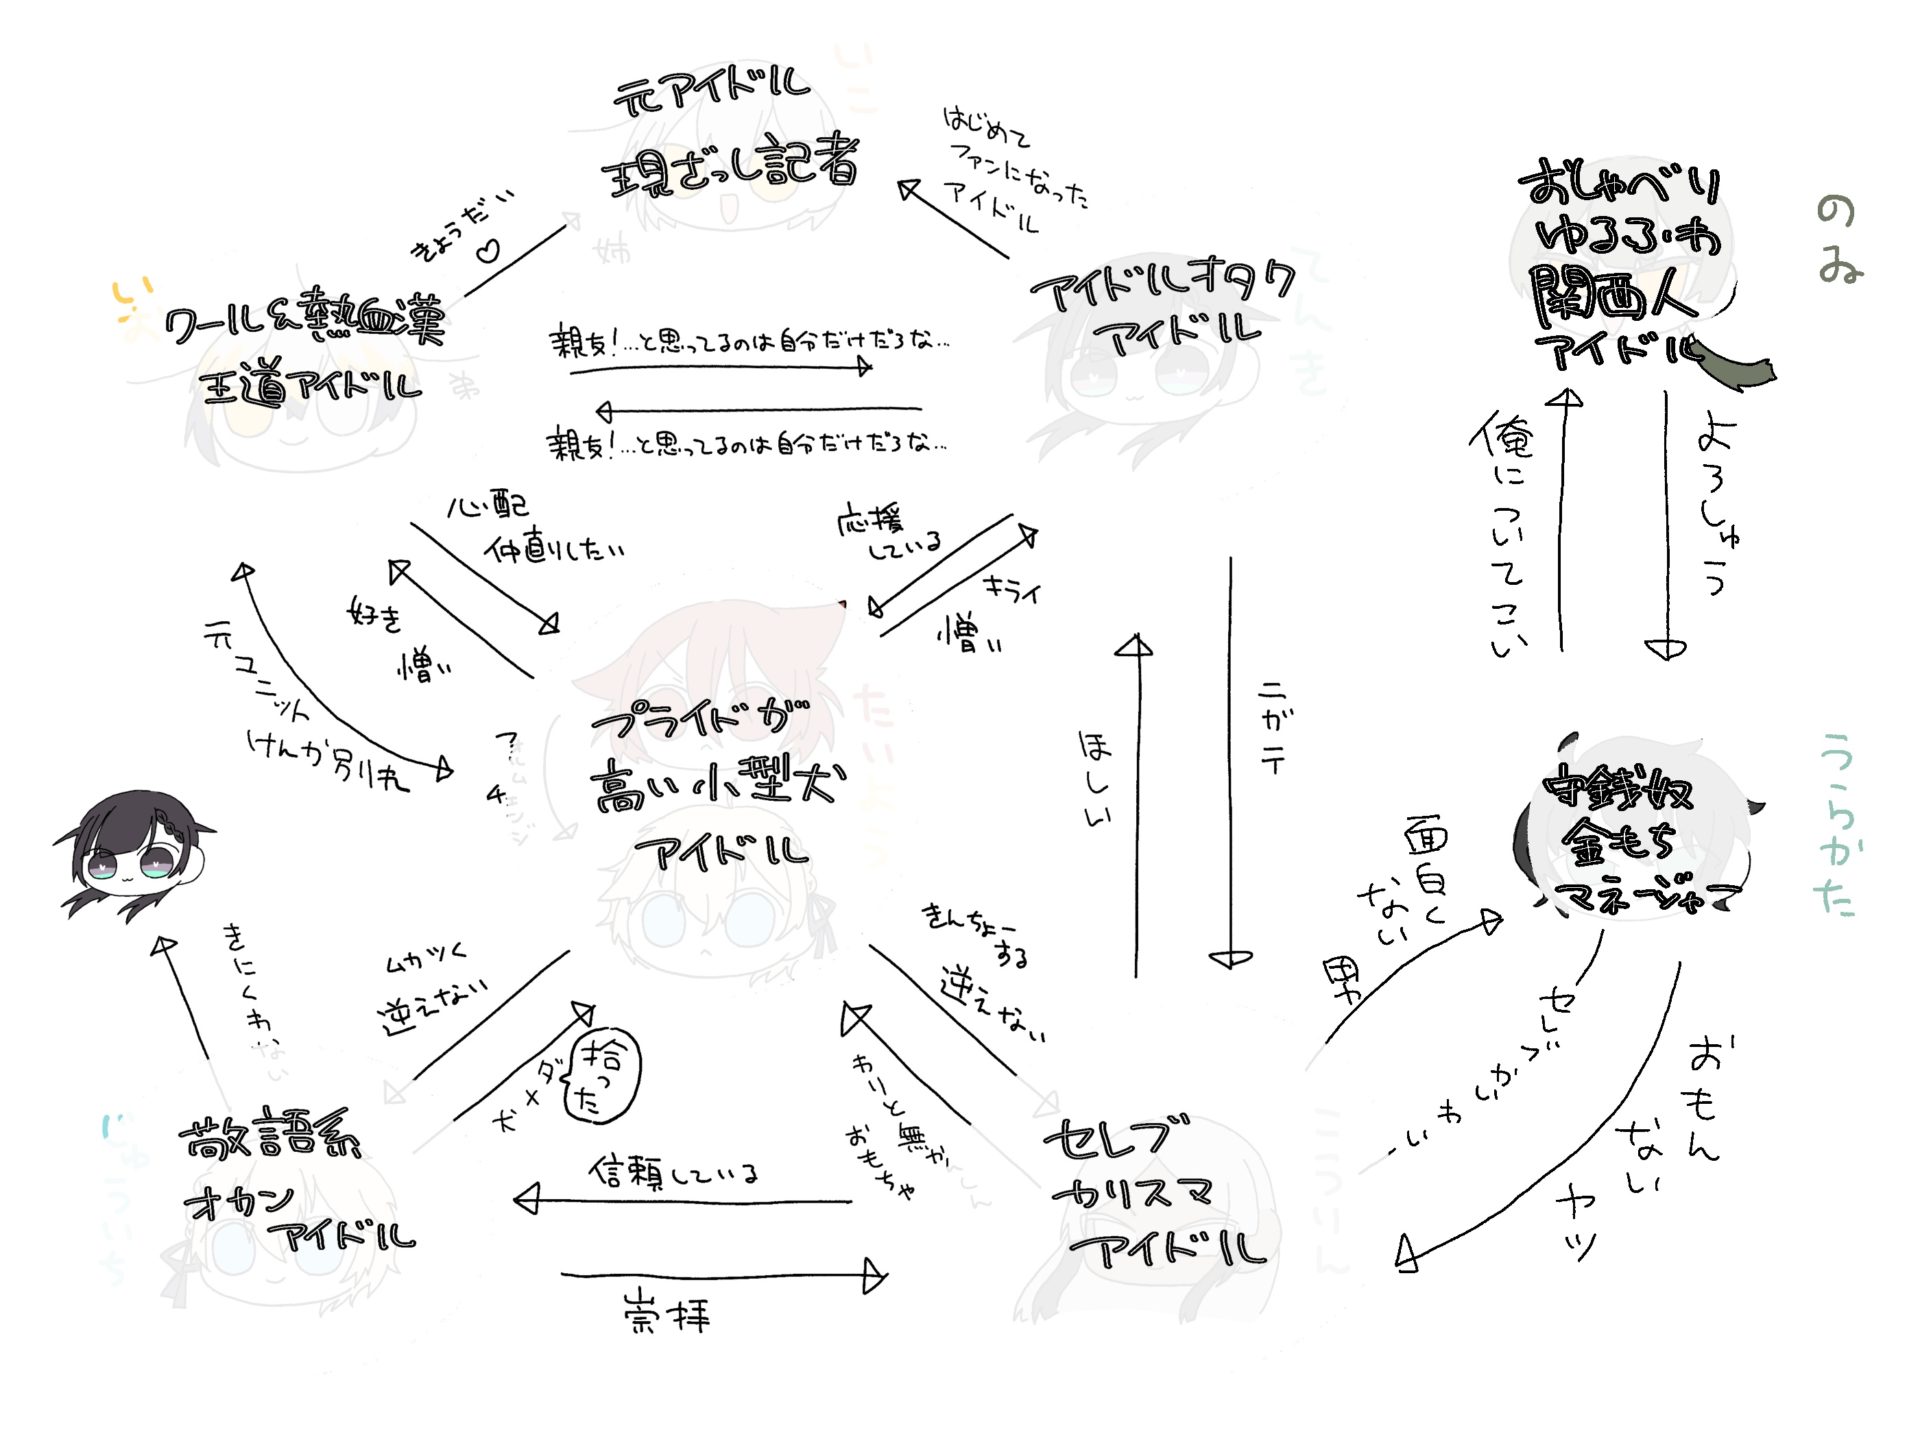 いこ
元アイドル
現ざっし記者
姉
はじめて
ファンになった
アイドル
きょうだい♡
い
クール&熱血漢
王道アイドル
弟
親友!…と思ってるのは自分だけだろな…
親友!…と思ってるのは自分だけだろな…
てんき
アイドルオタク
アイドル
のゐ
おしゃべり
ゆるふわ
関西人
アイドル
俺についてこい
よろしゅう
心配
仲直りしたい
好き
憎い
応援
している
キライ
憎い
元ユニット
けんか別れ
たいよう
プライドが
高い小型犬
アイドル
ほしい
ニガテ
うらかた
守銭奴
金もち
マネージャー
面白く
ない
男
セレブ
かいわい
おもんない
ヤツ
きにくわない
ムカツく
逆えない
拾った
ダメ犬
きんちょー
する
逆えない
わりと無かんしん
おもちゃ
じゅういち
敬語系
オカン
アイドル
信頼している
崇拝
こうりん
セレブ
カリスマ
アイドル